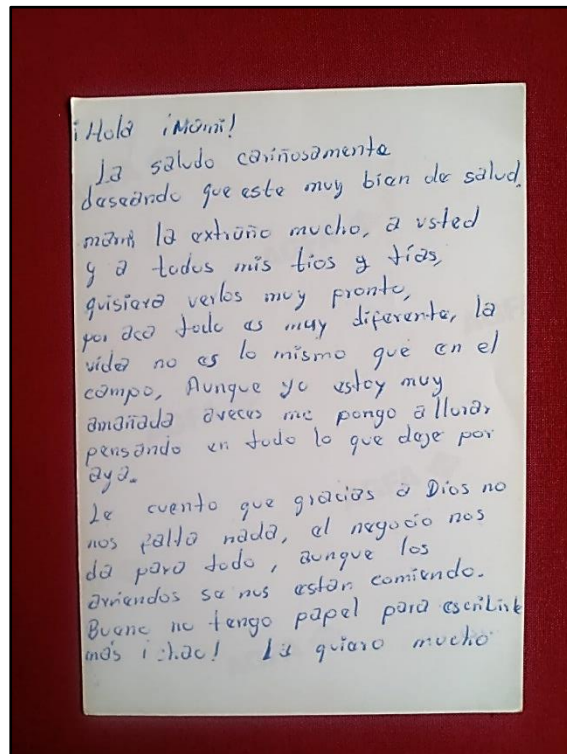 ¡Hola ¡Mami!
La saludo cariñosamente
deseando que este muy bien de salud,
mami la extraño mucho, a usted
y a todos mis tios y tías,
quisiera verlos muy pronto,
por aca todo es muy diferente, la
vida no es lo mismo que en el
campo, Aunque yo estoy muy
amañada aveces me pongo a llorar
pensando en todo lo que deje por
aya.
Le cuento que gracias a Dios no
nos falta nada, el negocio nos
da para todo, aunque los
arriendos se nos estan comiendo.
Bueno no tengo papel para escribirle
más ¡chao! La quiero mucho